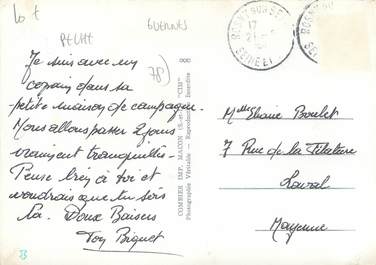 10 F
PECHE
GUERNES
(78)
Je suis avec un
copain dans sa
petite maison de campagne.
Nous allons passer 2 jours
vraiment tranquilles.
Pense bien à toi et
voudrais que tu sois
là. Doux Baisers
Ton Biquet
COMBIER IMP. MACON (S.-et-L.) "CIM"
Photographie Véritable - Reproduction Interdite
ROSNY SUR SEINE
17
21
Melle Eliane Boulet
7 Rue de la Filature
Laval
Mayenne